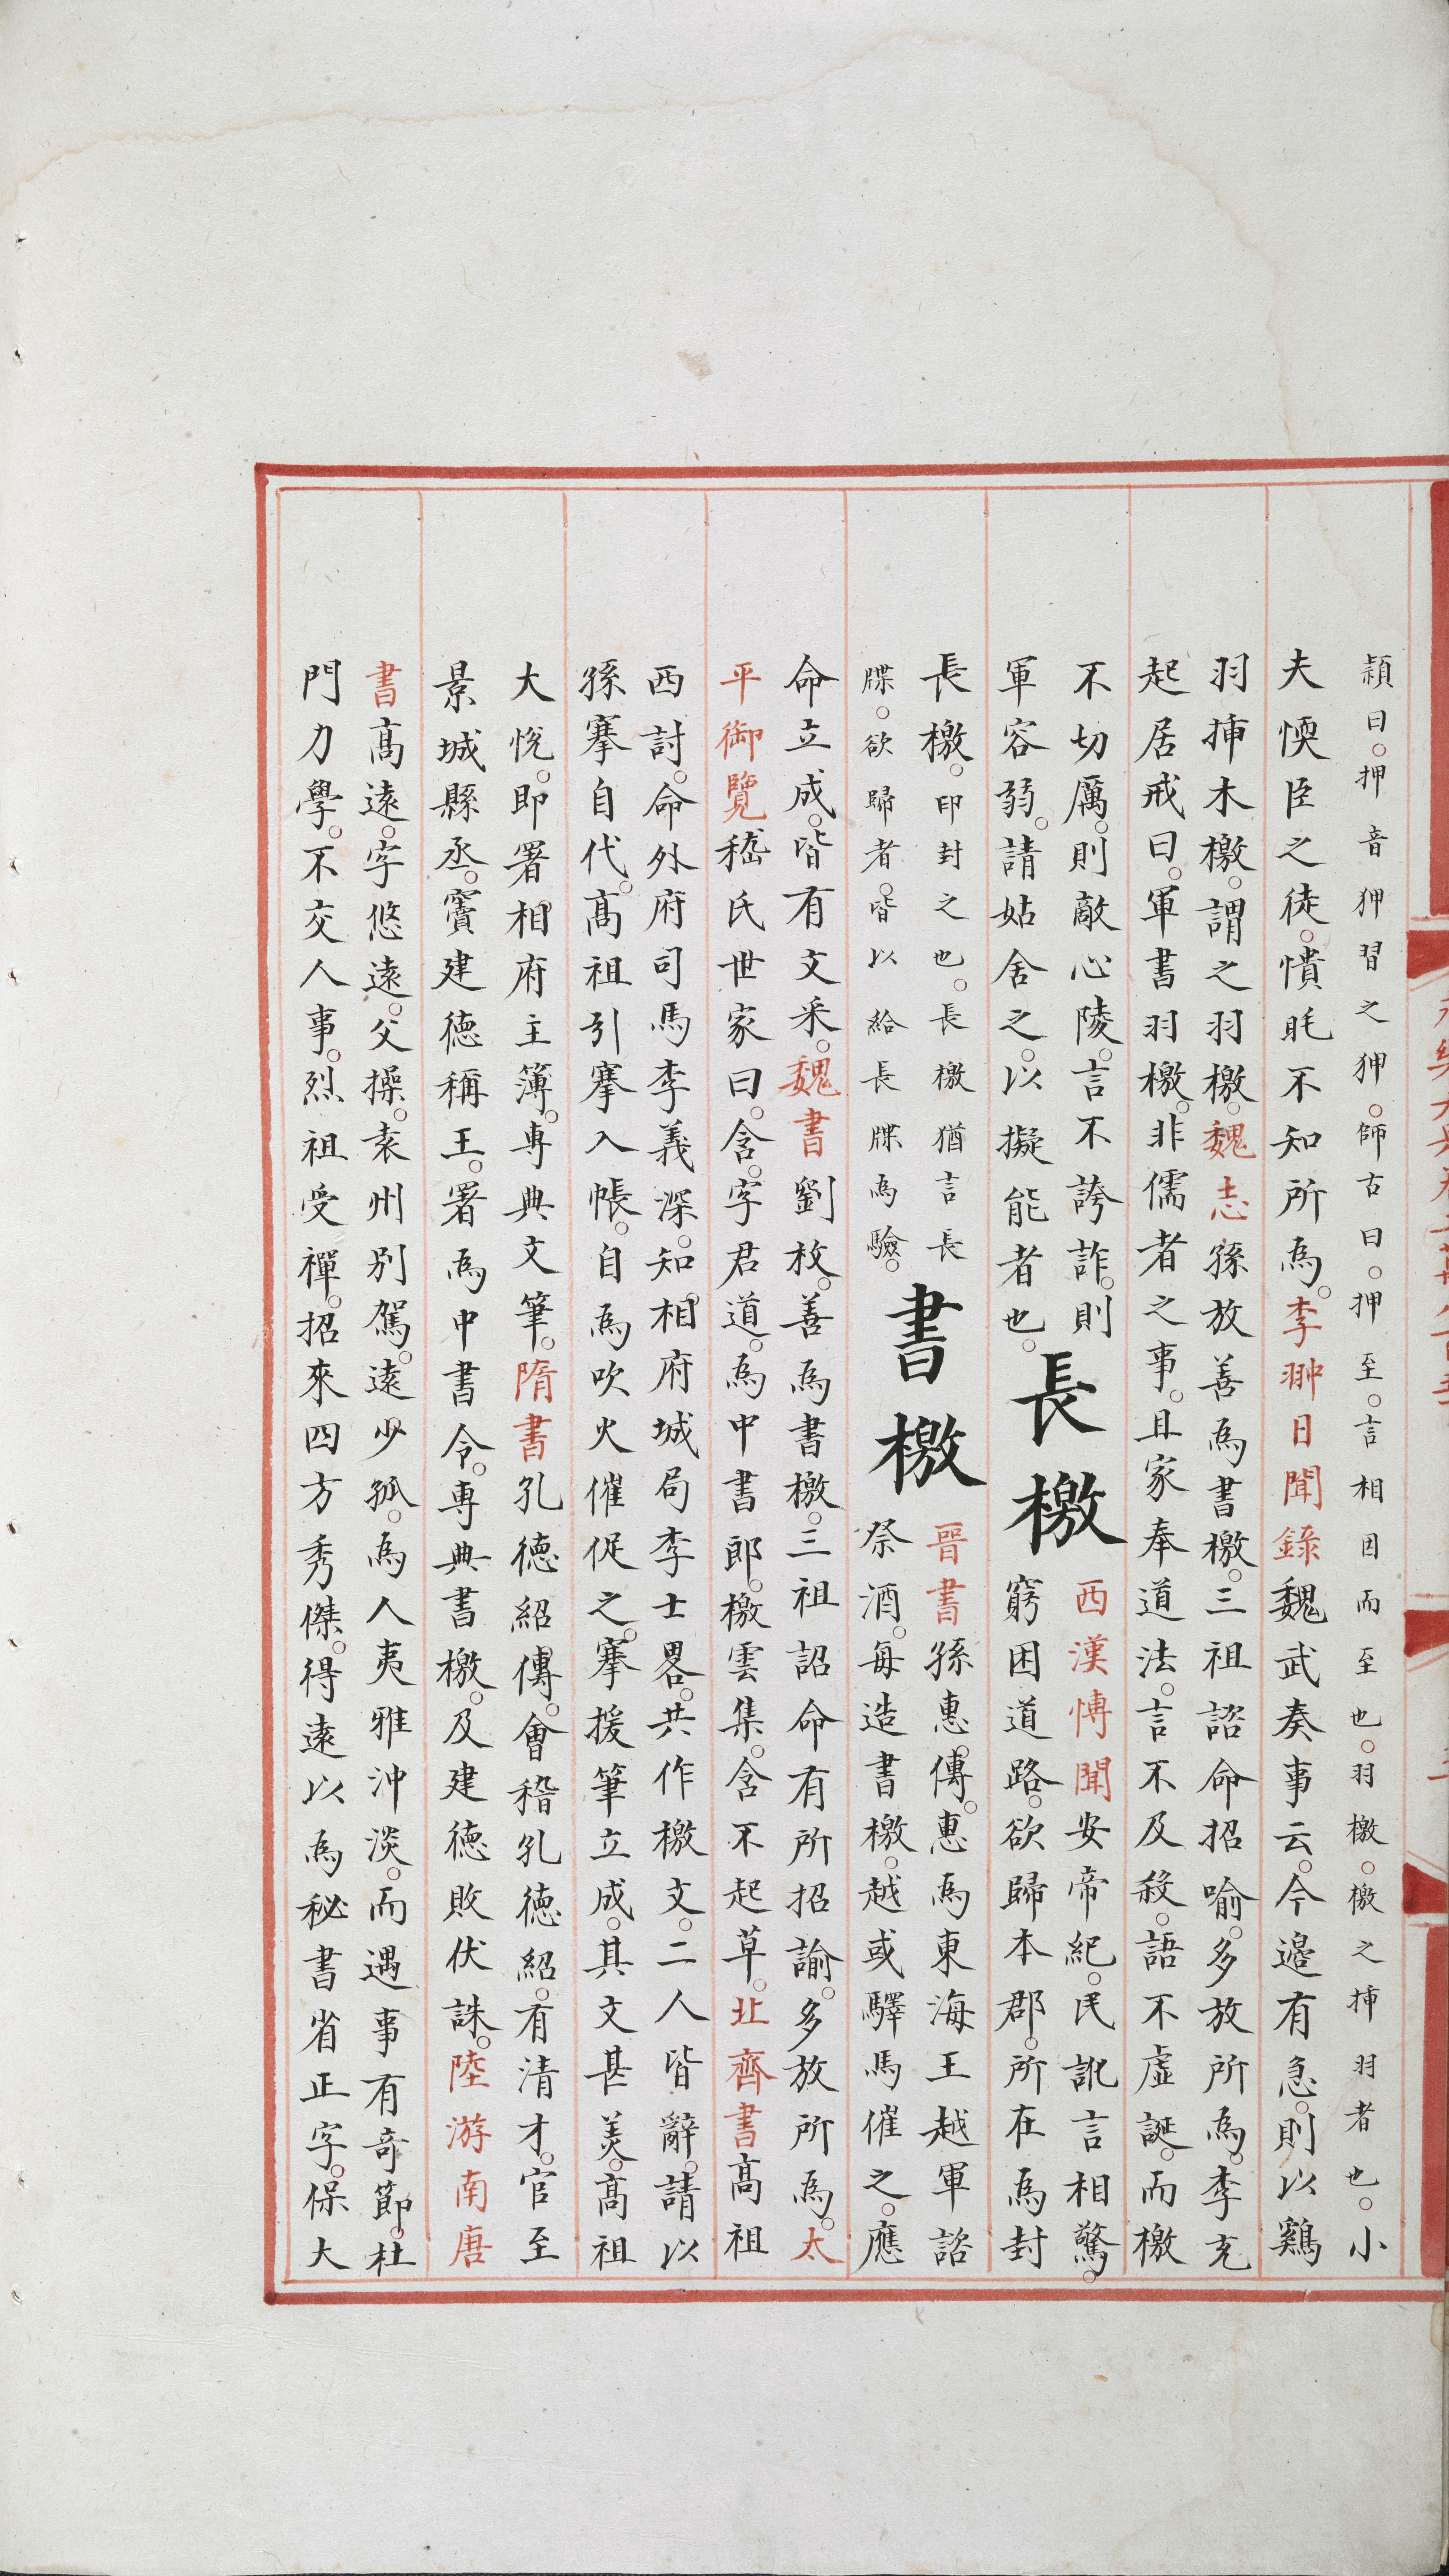 穎曰押音狎習之狎師古曰押至言相因而至也羽檄檄之揷羽者也小
夫愞臣之徒憒眊不知所為李翀日聞錄魏武奏事云今邉有急則以鷄
羽揷木檄謂之羽檄魏志孫放善為書檄三祖詔命招喻多放所為李充
起居戒曰軍書羽檄非儒者之事且家奉道法言不及殺語不虛誕而檄
不切厲則敵心陵言不誇詐則
軍容弱請姑舍之以擬能者也
長檄
西漢愽聞安帝紀民訛言相驚
窮困道路欲歸本郡所在為封
長檄印封之也長檄猶言長
牒欲歸者皆以給長牒為驗
書檄
晉書孫惠傳惠為東海王越軍諮
祭酒每造書檄越或驛馬催之應
命立成皆有文采魏書劉放善為書檄三祖詔命有所招諭多放所為太
平御覽嵇氏世家曰含字君道為中書郎檄雲集含不起草北齊書高祖
西討命外府司馬李義深知相府城局李士畧共作檄文二人皆辭請以
孫搴自代高祖引搴入帳自為吹火催促之搴援筆立成其文甚羙高祖
大悅即署相府主簿專典文筆隋書孔徳紹傳會稽孔徳紹有清才官至
景城縣丞竇建徳稱王署為中書令專典書檄及建徳敗伏誅陸游南唐
書高遠字悠遠父操袁州别駕遠少孤為人夷雅沖淡而遇事有奇節杜
門力學不交人事烈祖受禪招來四方秀傑得遠以為秘書省正字保大